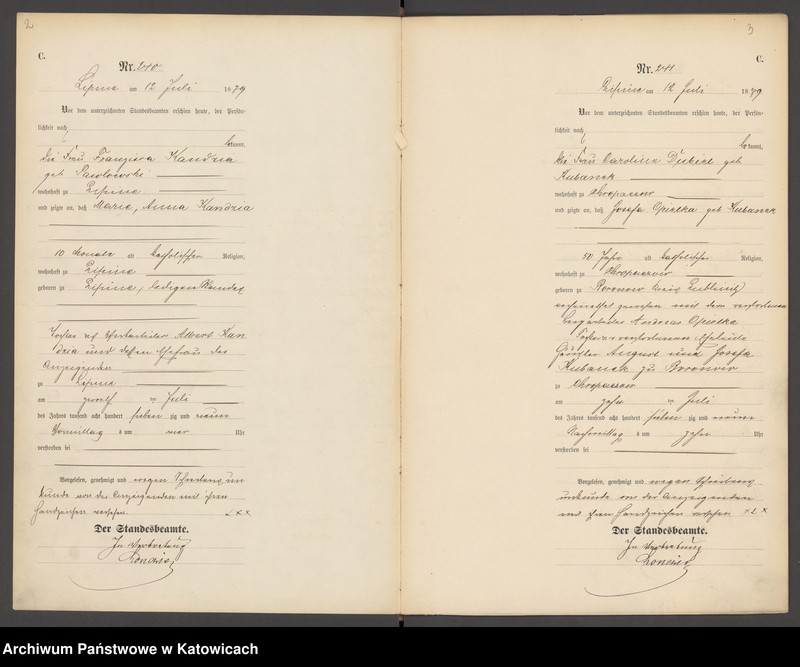 2
C.
Nr. 240
Lipine am 12 Juli 1879
Vor dem unterzeichneten Standesbeamten erschien heute, der Persön-
lichkeit nach
bekannt,
die Frau Franziska Kandzia
geb Pawlowski
wohnhaft zu Lipine
und zeigte an, daß Marie, Anna Kandzia
10 Monate alt katholischer Religion,
wohnhaft zu Lipine
geboren zu Lipine, ledigen Standes
Tochter des Albert Kan
dzia und dessen Ehefrau der
Anzeigenden
zu Lipine
am zwölf ten Juli
des Jahres tausend acht hundert sieben zig und neun
Vormittag s um vier Uhr
verstorben sei
Vorgelesen, genehmigt und wegen Schreibens un
kunde von der Anzeigenden mit ihren
Handzeichen versehen. xxx
Der Standesbeamte.
In Vertretung
3
C.
Nr. 241
Lipine am 12 Juli 1879
Vor dem unterzeichneten Standesbeamten erschien heute, der Persön-
lichkeit nach
bekannt,
die Frau Carolina Dubiel geb
Kubanek
wohnhaft zu Chropaczow
und zeigte an, daß Josefa Opielka geb Kubanek
50 Jahr alt katholischer Religion,
wohnhaft zu Chropaczow
geboren zu Boronow Kreis Lublinitz
verheirathet gewesen mit dem verstorbenen
Bergarbeiter Andreas Opielka
Tochter der verstorbenen Eheleute
August und Josefa
Kubanek zu Boronow
zu Chropaczow
am zehn ten Juli
des Jahres tausend acht hundert sieben zig und neun
Nachmittag s um zehn Uhr
verstorben sei
Vorgelesen, genehmigt und wegen Schreibens
unkunde von der Anzeigenden
mit ihren Handzeichen versehen xxx
Der Standesbeamte.
In Vertretung
Archiwum Państwowe w Katowicach